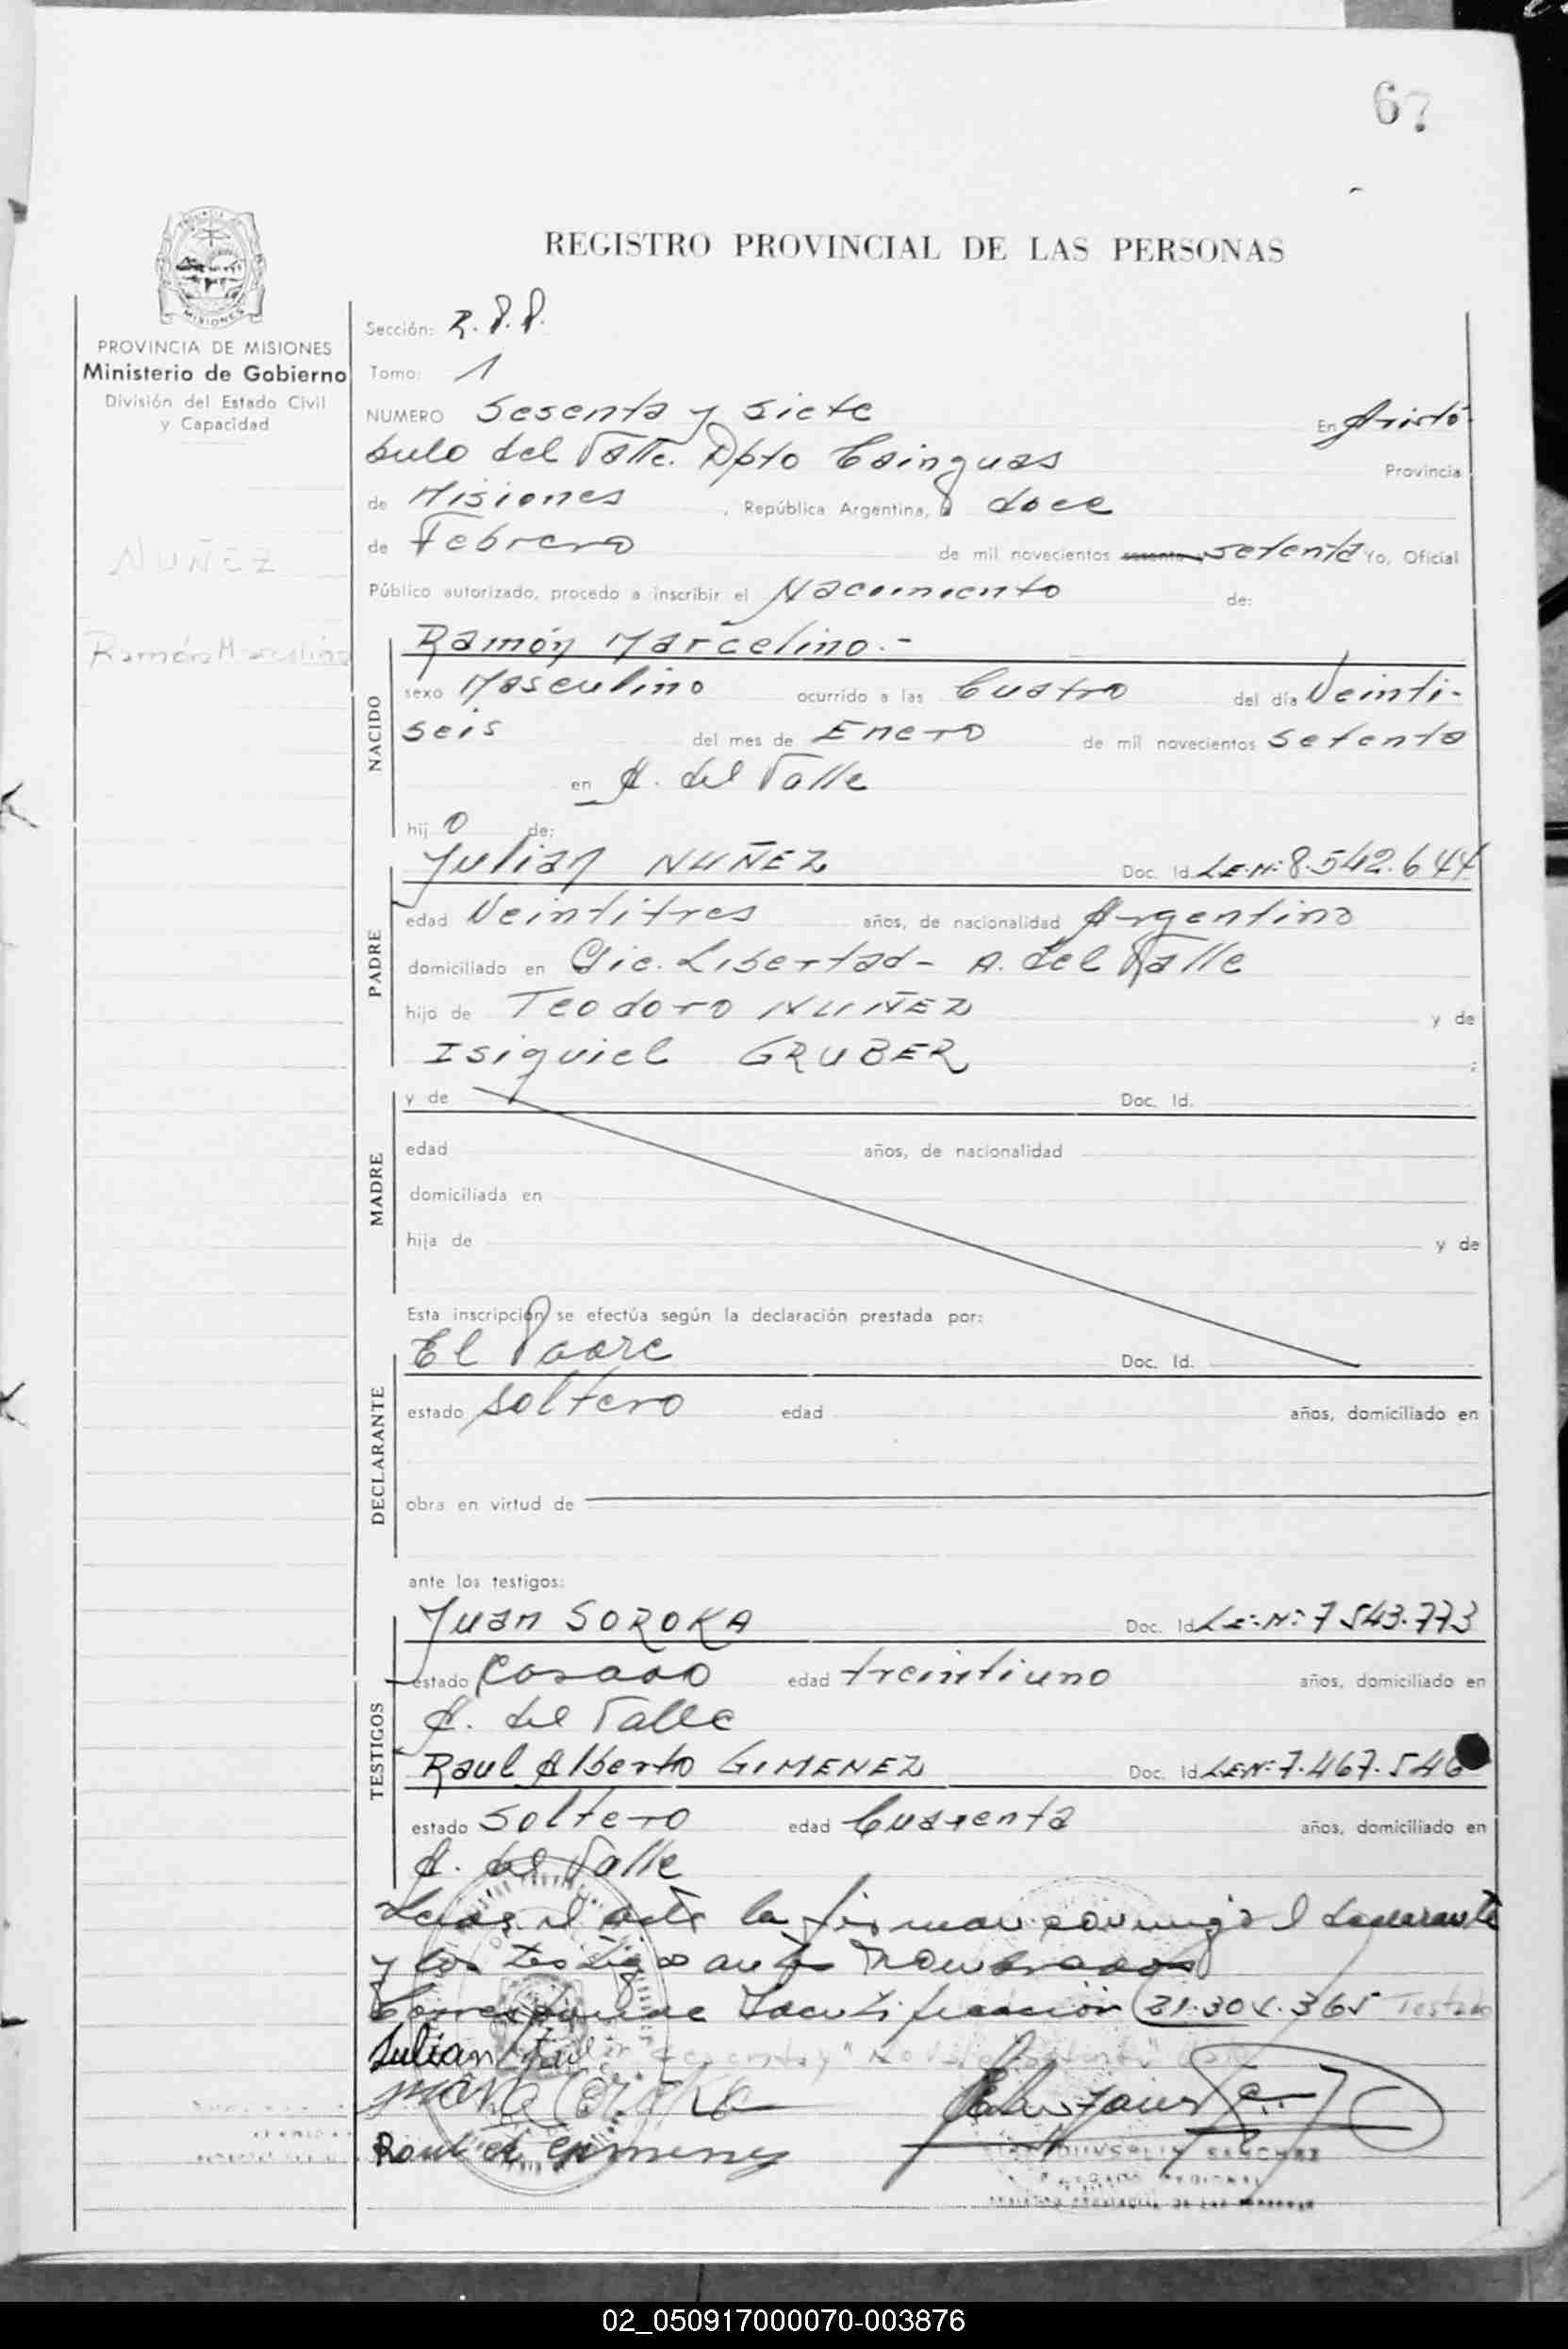 67
PROVINCIA DE MISIONES
Ministerio de Gobierno
División del Estado Civil
y Capacidad
NUÑEZ
Ramón Marcelino
REGISTRO PROVINCIAL DE LAS PERSONAS
Sección: R.P.P.
Tomo: 1
NUMERO Sesenta y siete En Aristó-
bulo del Valle. Dpto Cainguas Provincia
de Misiones, República Argentina, a doce
de Febrero de mil novecientos sesenta setenta Yo, Oficial
Público autorizado, procedo a inscribir el Nacimiento de:
NACIDO
Ramón Marcelino.-
sexo Masculino ocurrido a las Cuatro del día Veinti-
seis del mes de Enero de mil novecientos setenta
en A. del Valle
hij o de:
PADRE
Julian NUÑEZ Doc. Id. LE.Nº 8.542.644
edad Veintitres años, de nacionalidad Argentino
domiciliado en Pic. Libertad - A. del Valle
hijo de Teodoro NUÑEZ y de
Isiquiel GRUBER ;
MADRE
y de Doc. Id.
edad años, de nacionalidad
domiciliada en
hija de y de
Esta inscripción se efectúa según la declaración prestada por:
DECLARANTE
El Padre Doc. Id.
estado soltero edad años, domiciliado en
obra en virtud de
ante los testigos:
TESTIGOS
Juan SOROKA Doc. Id. LE.Nº 7 543.773
estado Casado edad treintiuno años, domiciliado en
A. del Valle
Raul Alberto GIMENEZ Doc. Id. LE.Nº 7.467.546
estado Soltero edad Cuarenta años, domiciliado en
A. del Valle
Leida el acta la firman conmigo el declarante
y los testigos antes nombrados
Corresponde Identificación 21.305.365 Testado
Julian
Raul A Gimenez
SANCHEZ
02_050917000070-003876